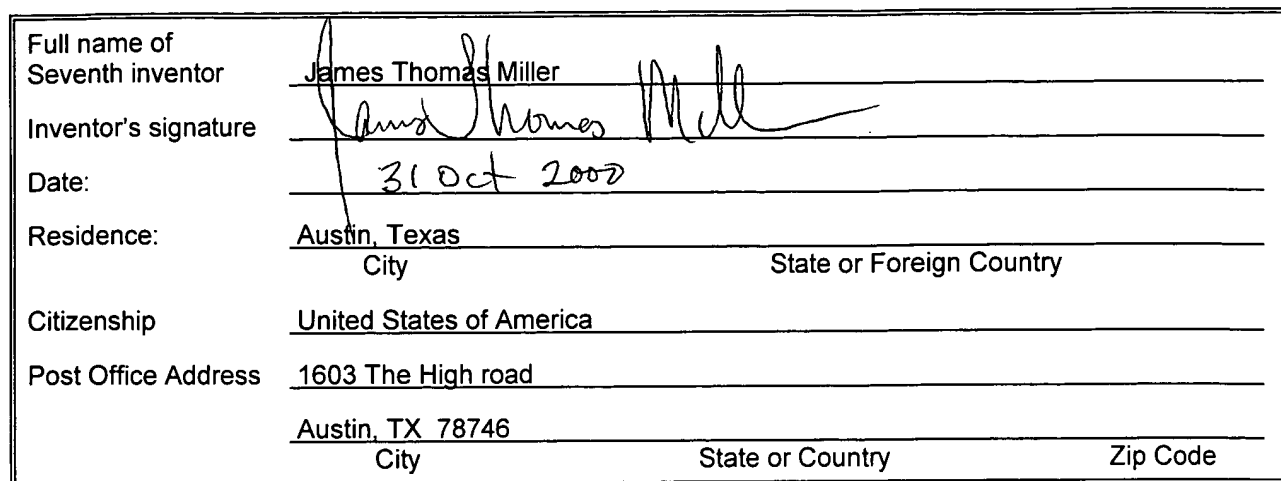 Full name of
Seventh inventor James Thomas Miller
Inventor's signature James Thomas Miller
Date: 31 Oct 2000
Residence: Austin, Texas
City State or Foreign Country
Citizenship United States of America
Post Office Address 1603 The High road
Austin, TX 78746
City State or Country Zip Code